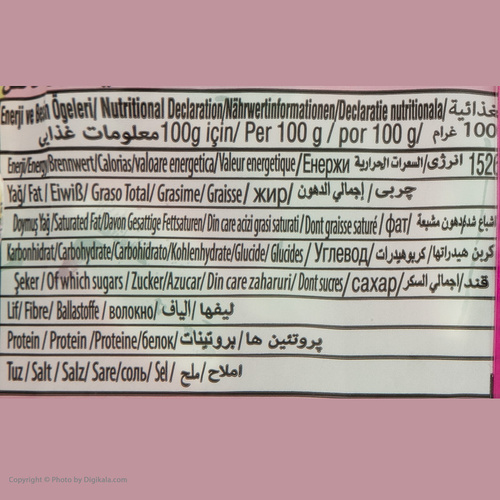 Enerji ve Besin Ögeleri/ Nutritional Declaration/Nährwertinformationen/Declaratie nutritionala/ غذائية
معلومات غذایی 100g için/ Per 100 g / por 100 g/ 100 غرام
Enerji/Energy/Brennwert/Calorias/valoare energetica/Valeur energetique/Енержи انرژی/السعرات الحرارية 152
Yağ/ Fat / Eiwiß/ Graso Total/ Grasime/ Graisse / жир/ چربی/ إجمالي الدهون
Doymuş Yağ/Saturated Fat/Davon Gesattige Fettsaturen/Din care acizi grasi saturati/Dont graisse saturé / фат/ دهون مشبعة
Karbonhidrat/Carbohydrate/Carbohidrato/Kohlenhydrate/Glucide/ Glucides / Углевод/ كربوهيدرات/ کربن هیدراتها
Şeker / Of which sugars / Zucker/Azucar/ Din care zaharuri/ Dont sucres/ сахар/ قند/إجمالي السكر
Lif/ Fibre/ Ballastoffe / волокно/ ألياف/ ليفها
Protein / Protein /Proteine/белок/ بروتينات/ پروتئین ها
Tuz / Salt / Salz/ Sare/соль/ Sel / ملح / املاح
Copyright © Photo by Digikala.com